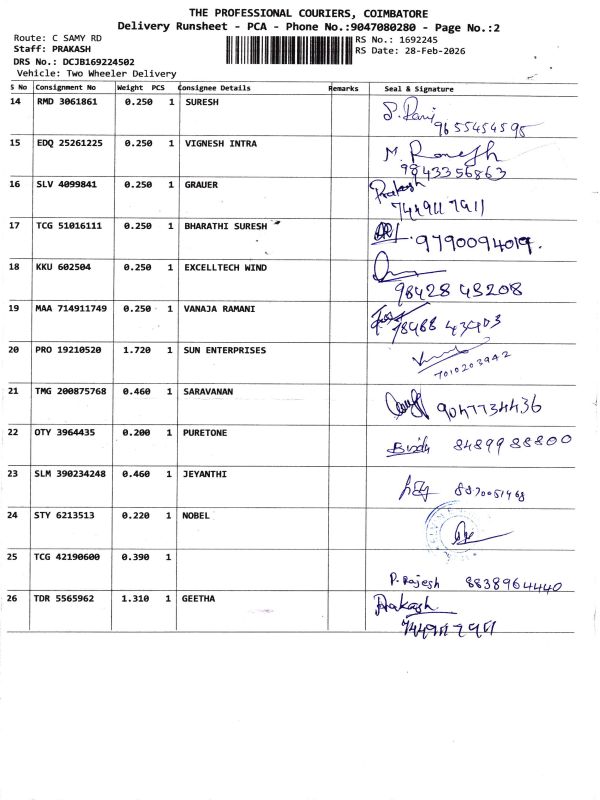 THE PROFESSIONAL COURIERS, COIMBATORE
Delivery Runsheet - PCA - Phone No.:9047080280 - Page No.:2
Route: C SAMY RD
RS No.: 1692245
Staff: PRAKASH
RS Date: 28-Feb-2026
DRS No.: DCJB169224502
Vehicle: Two Wheeler Delivery
S No Consignment No Weight PCS Consignee Details Remarks Seal & Signature
14 RMD 3061861 0.250 1 SURESH
9655454595
15 EDQ 25261225 0.250 1 VIGNESH INTRA M. Ramesh
9843356863
16 SLV 4099841 0.250 1 GRAUER Prakash
7449117911
17 TCG 51016111 0.250 1 BHARATHI SURESH 9790094019.
18 KKU 602504 0.250 1 EXCELLTECH WIND
98428 43208
19 MAA 714911749 0.250 1 VANAJA RAMANI 43403
20 PRO 19210520 1.720 1 SUN ENTERPRISES
7010203942
21 TMG 200875768 0.460 1 SARAVANAN 9047734436
22 OTY 3964435 0.200 1 PURETONE 8489988800
23 SLM 390234248 0.460 1 JEYANTHI 8870051468
24 STY 6213513 0.220 1 NOBEL
25 TCG 42190600 0.390 1 P. Rajesh 8838964440
26 TDR 5565962 1.310 1 GEETHA Prakash
7449117911